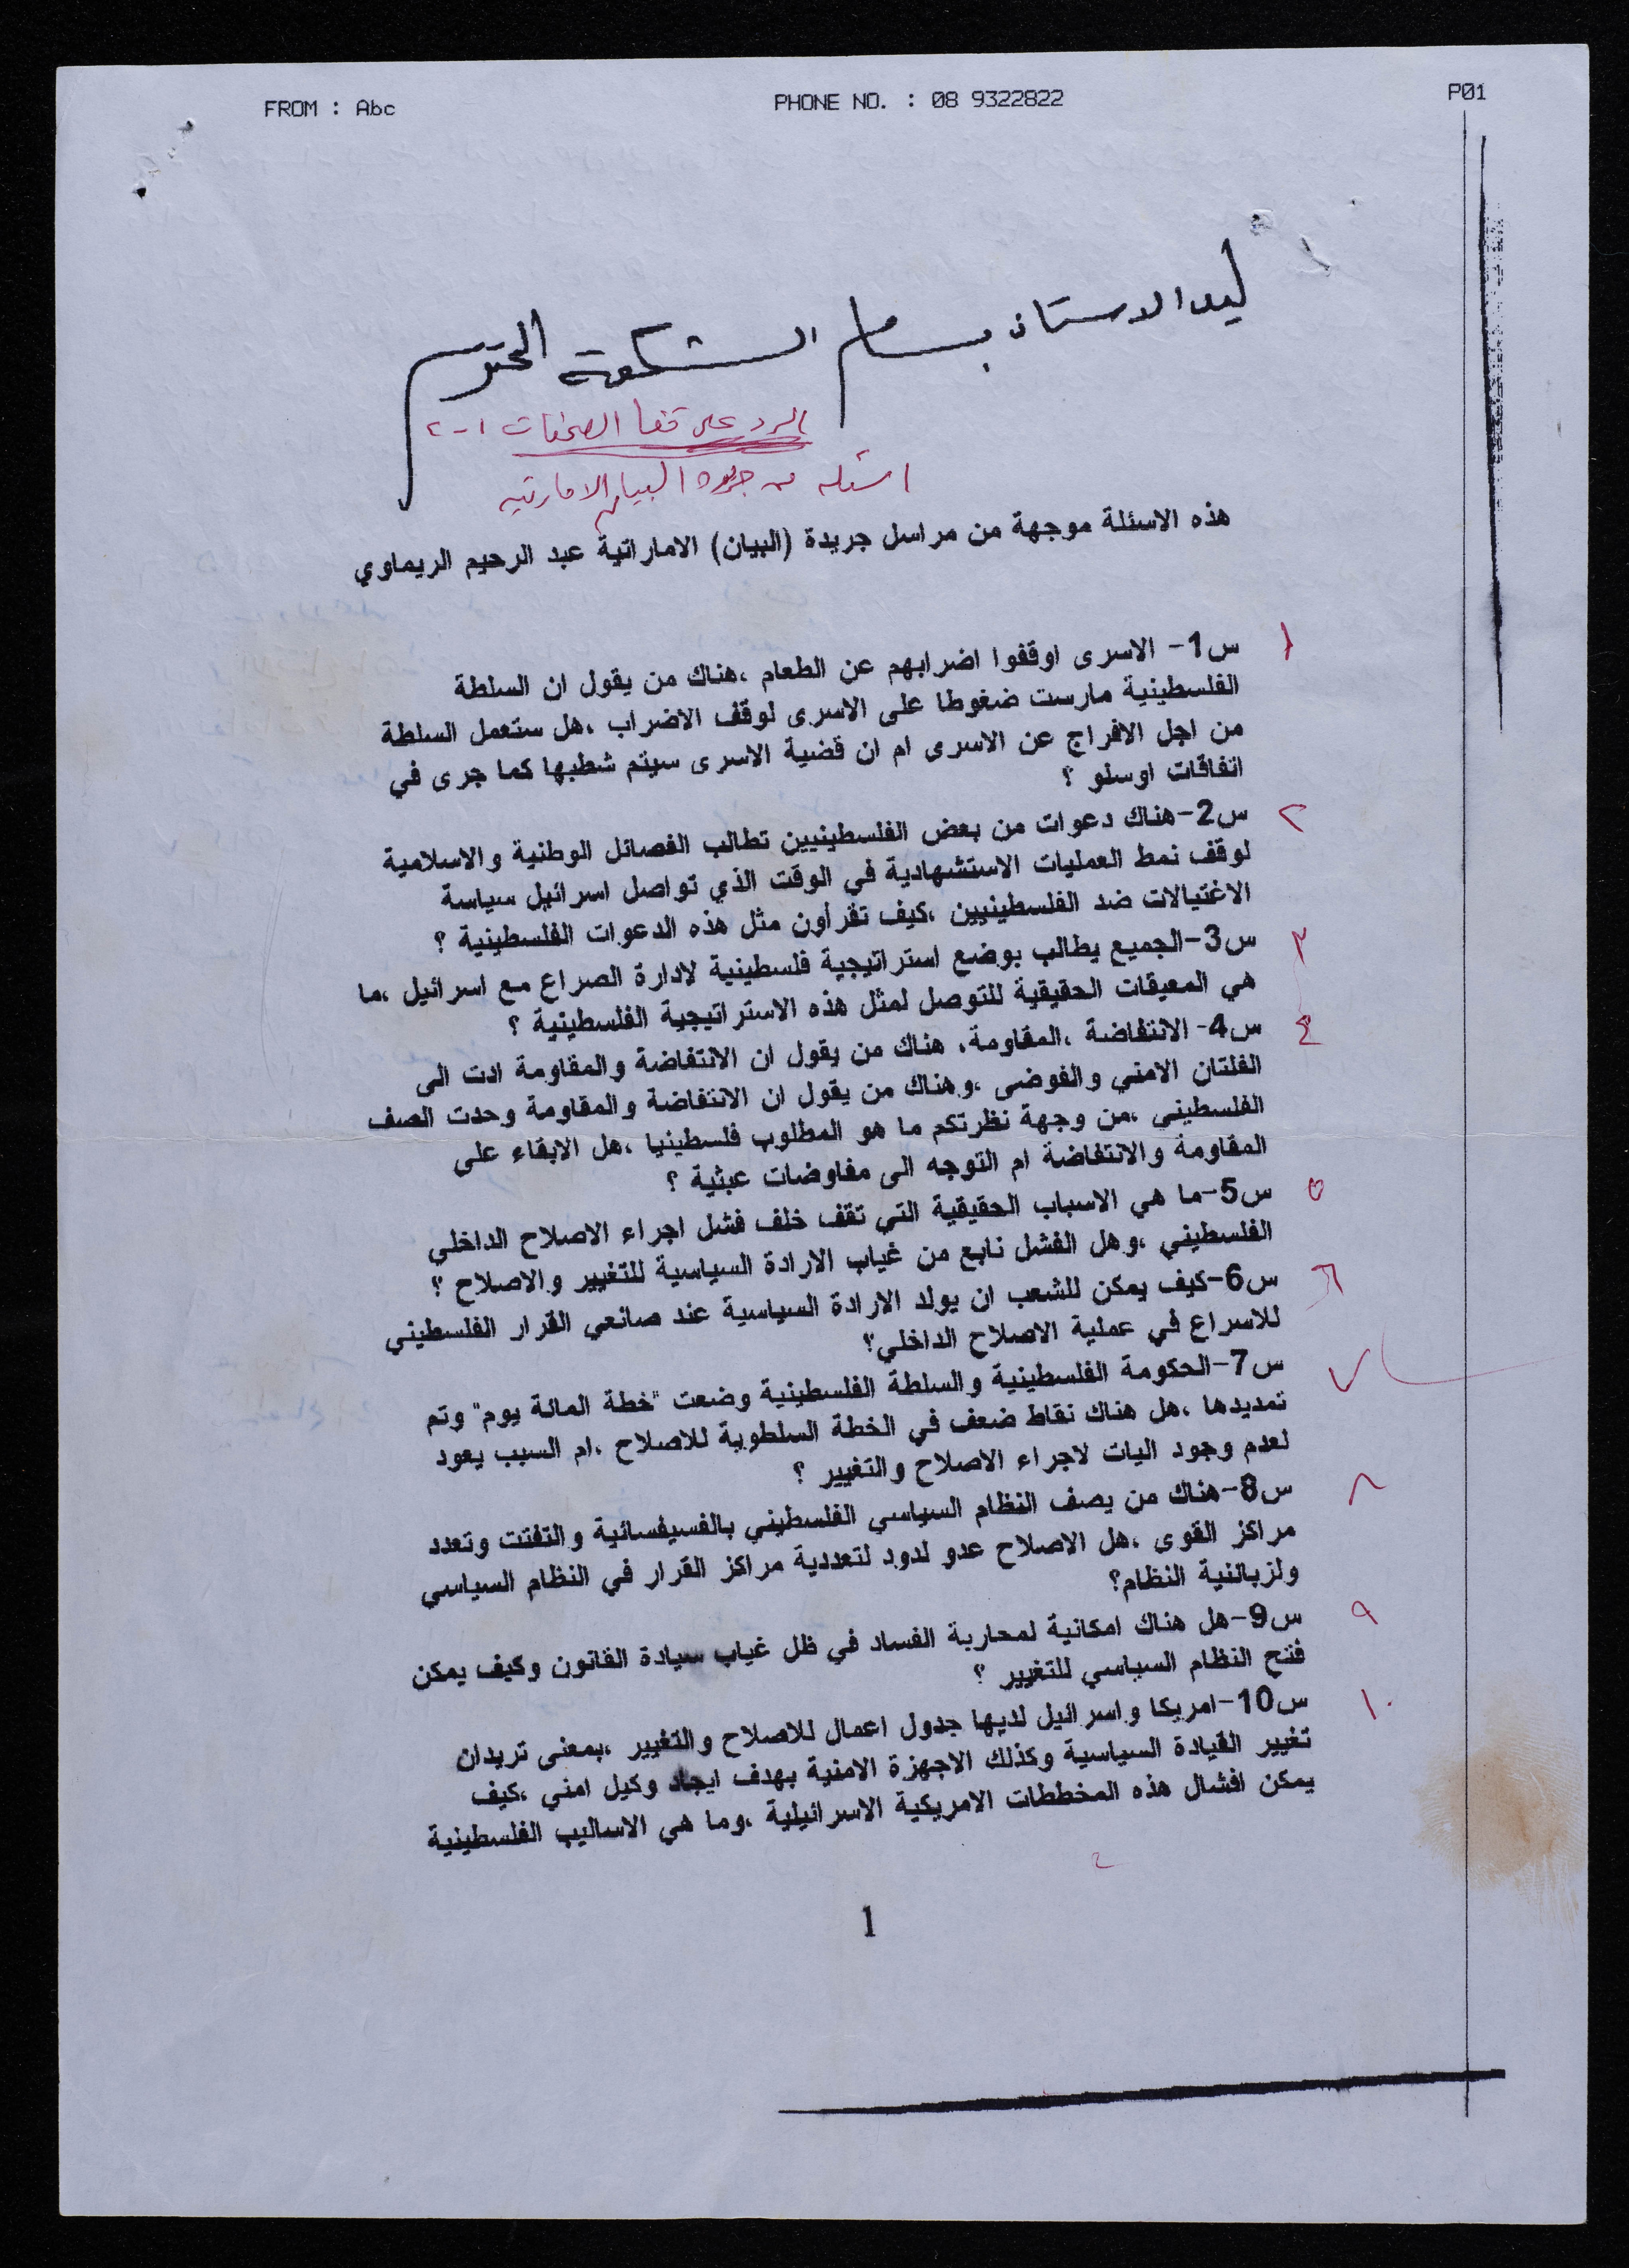 FROM : Abc PHONE NO. : 08 9322822 P01
ليد الاستاذ بسام الشكعة المحترم
الرد على قفا الصفحات ١-٢
اسئله من جريدة البيان الاماراتيه
هذه الاسئلة موجهة من مراسل جريدة (البيان) الاماراتية عبد الرحيم الريماوي
١ س1- الاسرى اوقفوا اضرابهم عن الطعام ،هناك من يقول ان السلطة
الفلسطينية مارست ضغوطا على الاسرى لوقف الاضراب ،هل ستعمل السلطة
من اجل الافراج عن الاسرى ام ان قضية الاسرى سيتم شطبها كما جرى في
اتفاقات اوسلو ؟
٢ س2-هناك دعوات من بعض الفلسطينيين تطالب الفصائل الوطنية والاسلامية
لوقف نمط العمليات الاستشهادية في الوقت الذي تواصل اسرائيل سياسة
الاغتيالات ضد الفلسطينيين ،كيف تقرأون مثل هذه الدعوات الفلسطينية ؟
٣ س3-الجميع يطالب بوضع استراتيجية فلسطينية لادارة الصراع مع اسرائيل ،ما
هي المعيقات الحقيقية للتوصل لمثل هذه الاستراتيجية الفلسطينية ؟
٤ س4- الانتفاضة ،المقاومة، هناك من يقول ان الانتفاضة والمقاومة ادت الى
الفلتان الامني والفوضى ،وهناك من يقول ان الانتفاضة والمقاومة وحدت الصف
الفلسطيني ،من وجهة نظرتكم ما هو المطلوب فلسطينيا ،هل الابقاء على
المقاومة والانتفاضة ام التوجه الى مفاوضات عبثية ؟
٥ س5-ما هي الاسباب الحقيقية التي تقف خلف فشل اجراء الاصلاح الداخلي
الفلسطيني ،وهل الفشل نابع من غياب الارادة السياسية للتغيير والاصلاح ؟
٦ س6-كيف يمكن للشعب ان يولد الارادة السياسية عند صانعي القرار الفلسطيني
للاسراع في عملية الاصلاح الداخلي؟
٧ س7-الحكومة الفلسطينية والسلطة الفلسطينية وضعت "خطة المائة يوم" وتم
تمديدها ،هل هناك نقاط ضعف في الخطة السلطوية للاصلاح ،ام السبب يعود
لعدم وجود اليات لاجراء الاصلاح والتغيير ؟
٨ س8-هناك من يصف النظام السياسي الفلسطيني بالفسيفسائية والتفتت وتعدد
مراكز القوى ،هل الاصلاح عدو لدود لتعددية مراكز القرار في النظام السياسي
ولزبائنية النظام؟
٩ س9-هل هناك امكانية لمحاربة الفساد في ظل غياب سيادة القانون وكيف يمكن
فتح النظام السياسي للتغيير ؟
١٠ س10-امريكا واسرائيل لديها جدول اعمال للاصلاح والتغيير ،بمعنى تريدان
تغيير القيادة السياسية وكذلك الاجهزة الامنية بهدف ايجاد وكيل امني ،كيف
يمكن افشال هذه المخططات الامريكية الاسرائيلية ،وما هي الاساليب الفلسطينية
1